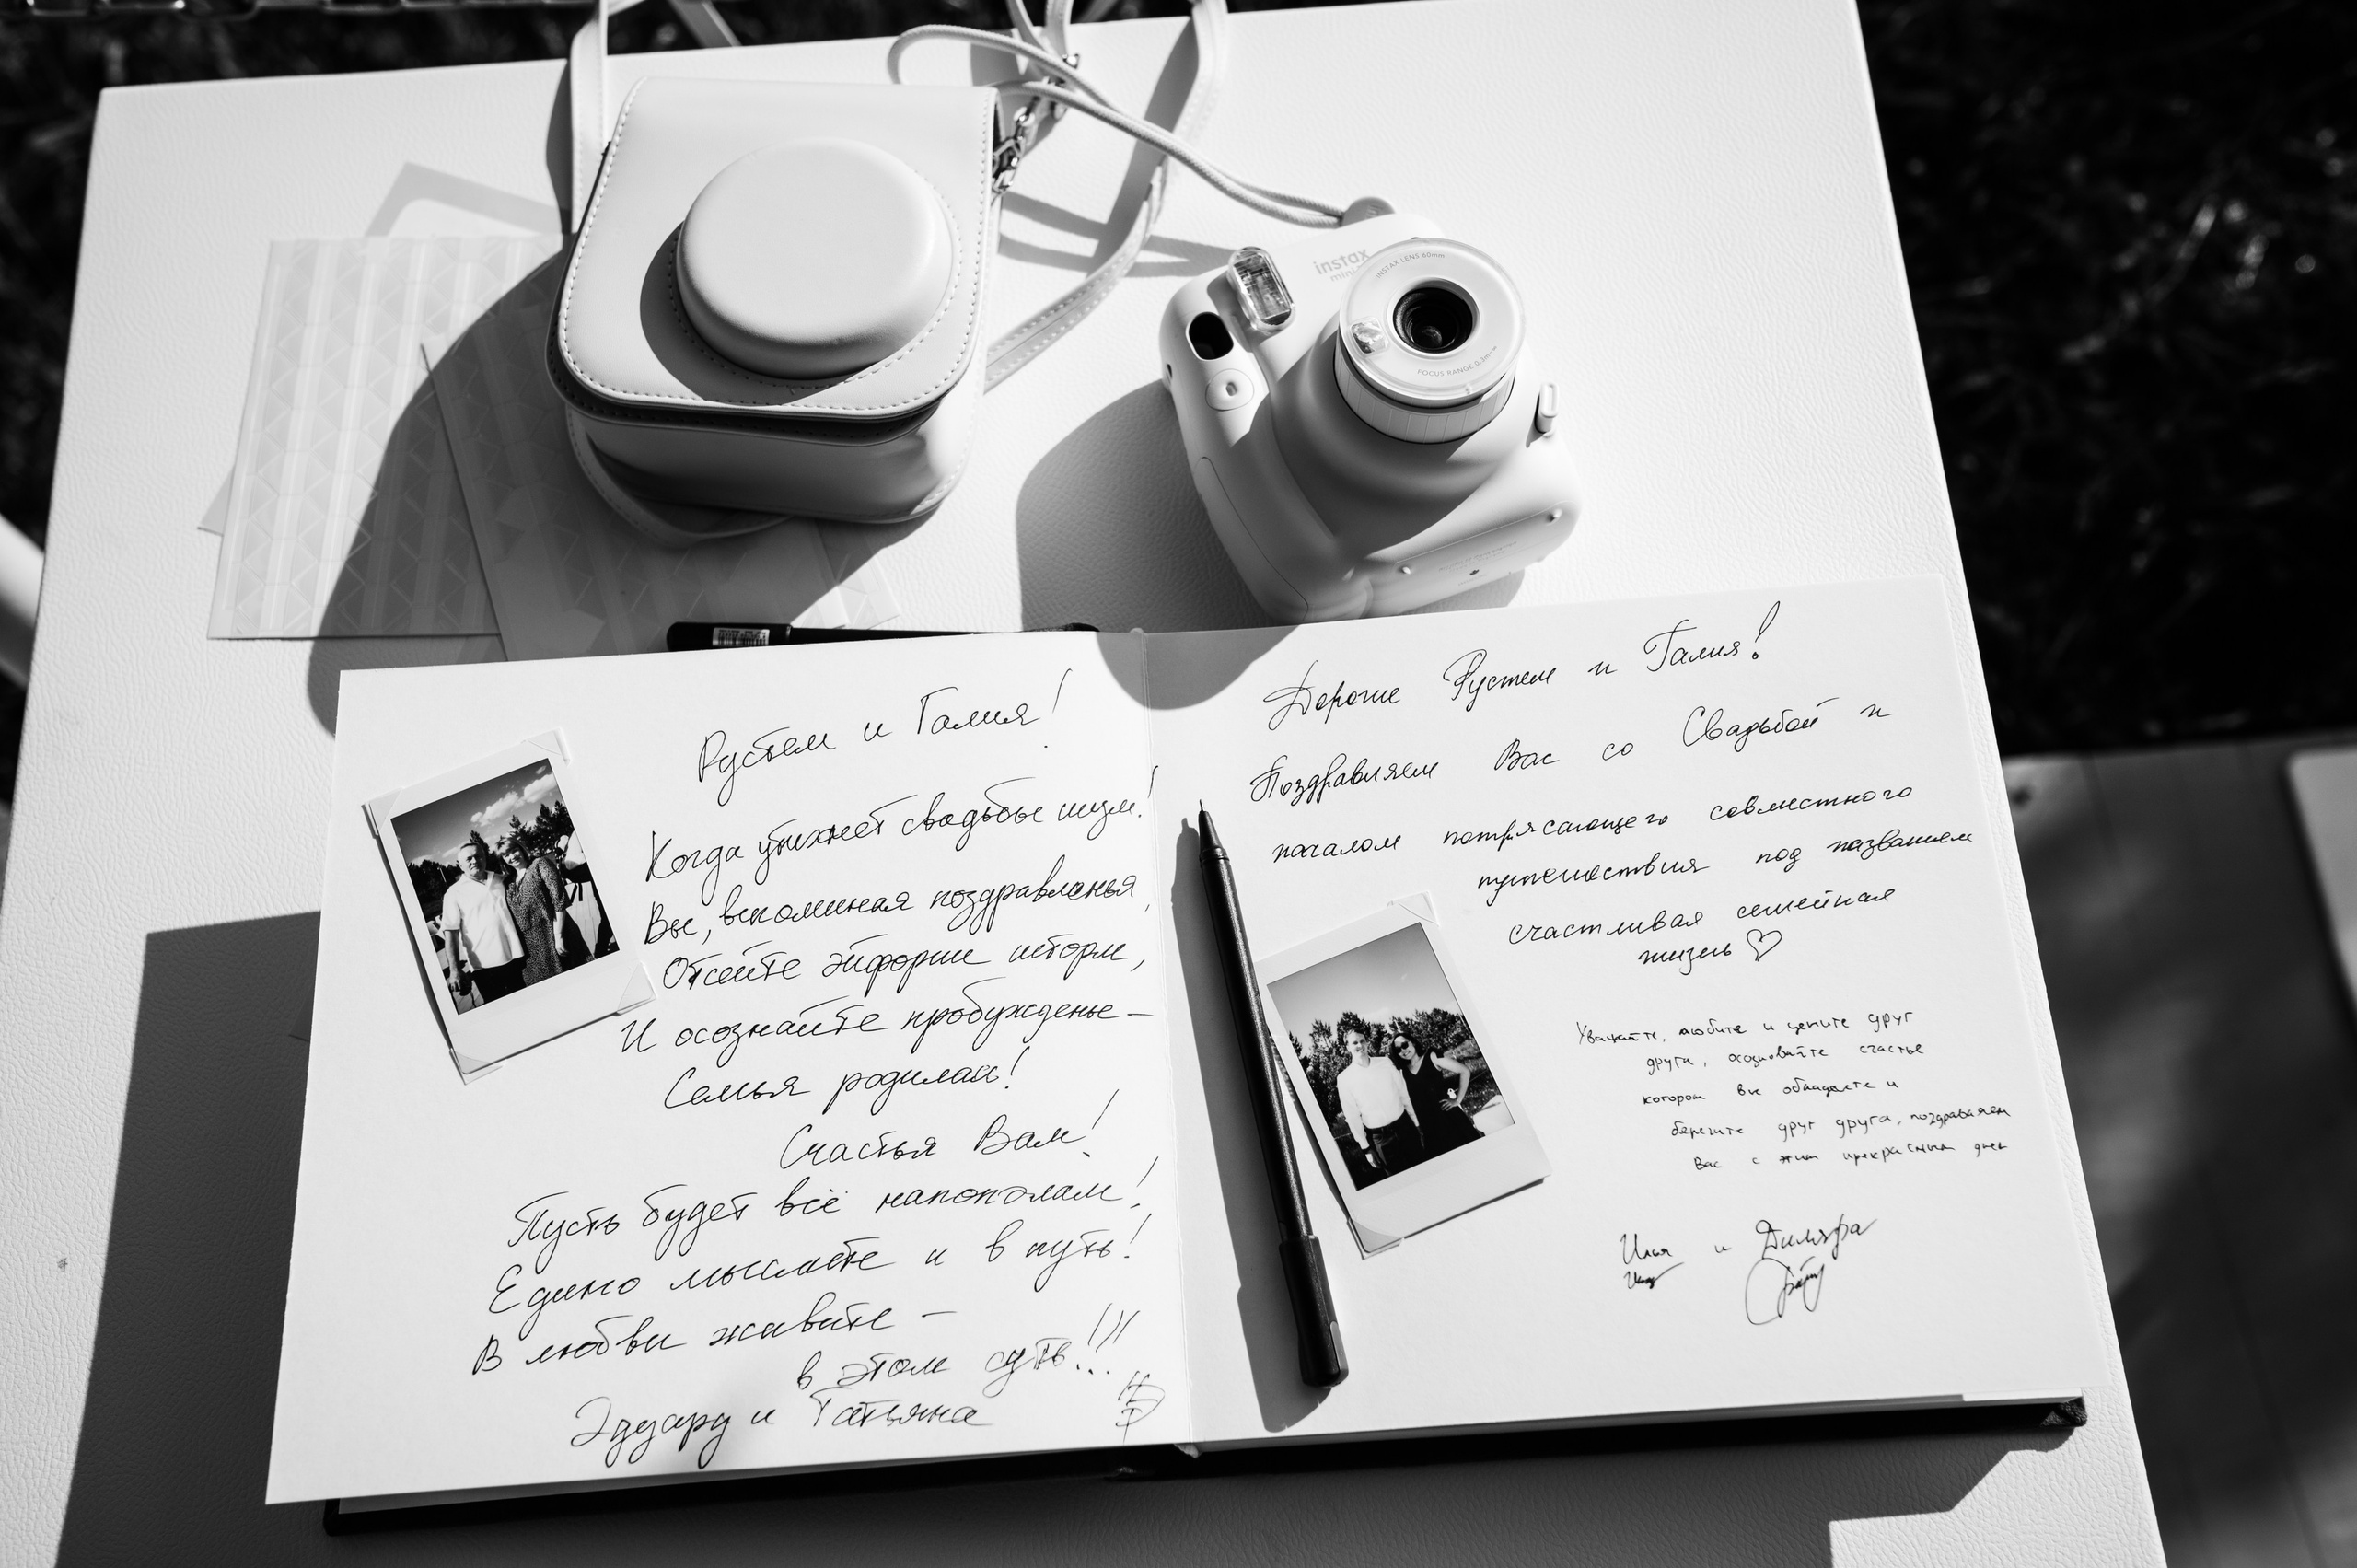 instax
mini
INSTAX LENS 60mm
FOCUS RANGE 0.3m-∞
Рустем и Галия!
Когда утихнет свадьбы шум!
Вы, вспоминая поздравленья,
Отсейте эйфории шторм,
И осознайте пробужденье –
Семья родилась!
Счастья Вам!
Пусть будет всё напополам!
Едино мыслите и в путь!
В любви живите –
в этом суть!!!
Эдуард и Татьяна
Дорогие Рустем и Галия!
Поздравляем Вас со Свадьбой и
началом потрясающего совместного
путешествия под названием
счастливая семейная
жизнь ♡
Уважайте, любите и цените друг
друга, осознавайте счастье
которым вы обладаете и
берегите друг друга, поздравляем
Вас с этим прекрасным днем
Илья и Диляра